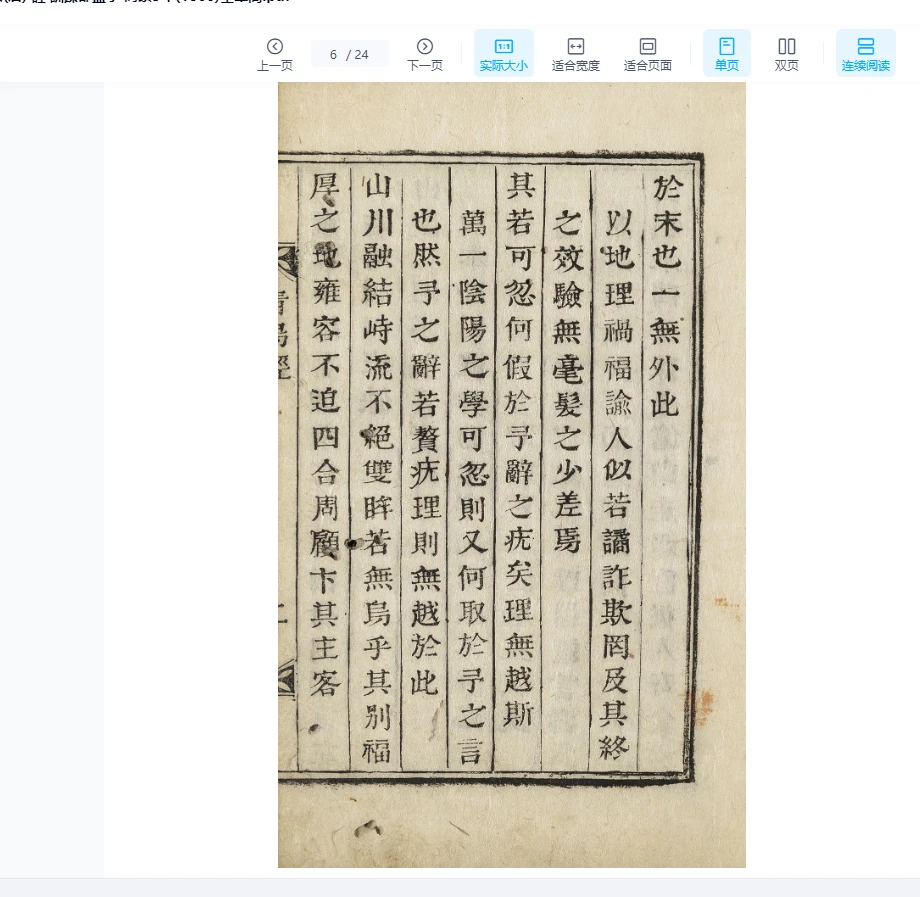 上一页
6 / 24
下一页
实际大小
适合宽度
适合页面
单页
双页
连续阅读
於末也一無外此
以地理禍福諭人似若譎詐欺罔及其終
之效驗無毫髮之少差焉
其若可忽何假於予辭之疣矣理無越斯
萬一陰陽之學可忽則又何取於予之言
也然予之辭若贅疣理則無越於此
山川融結峙流不絕雙眸若無烏乎其別福
厚之地雍容不迫四合周顧卞其主客